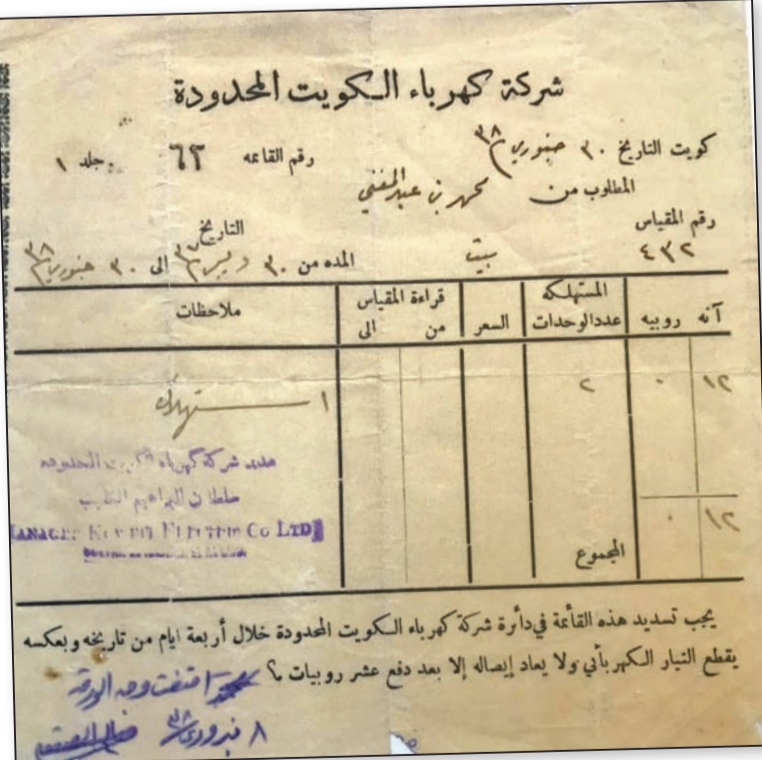 شركة كهرباء الكويت المحدودة
كويت التاريخ ٣٠ جنوري ٣٨ رقم القائمه ٦٢ جلد ١
المطلوب من محمد بن عبد المغني
رقم المقياس التاريخ
٤٣٢ بيت المده من ٣٠ دسمبر ٣٧ الى ٣٠ جنوري ٣٨
آنه روبيه المستهلكه عددالوحدات السعر قراءة المقياس من الى ملاحظات
١٢ ٠ ٢ استهلاك
مدير شركة كهرباء الكويت المحدوده
سلطان ابراهيم الكليب
MANAGER KUWAIT ELECTRIC CO LTD
١٢ ٠
المجموع
يجب تسديد هذه القأئمة في دأئرة شركة كهرباء الكويت المحدودة خلال أربعة ايام من تاريخه وبعكسه
يقطع التيار الكهربأني ولا يعاد إيصاله إلا بعد دفع عشر روبيات م؟
الورقة
٨ فبروري ٣٨